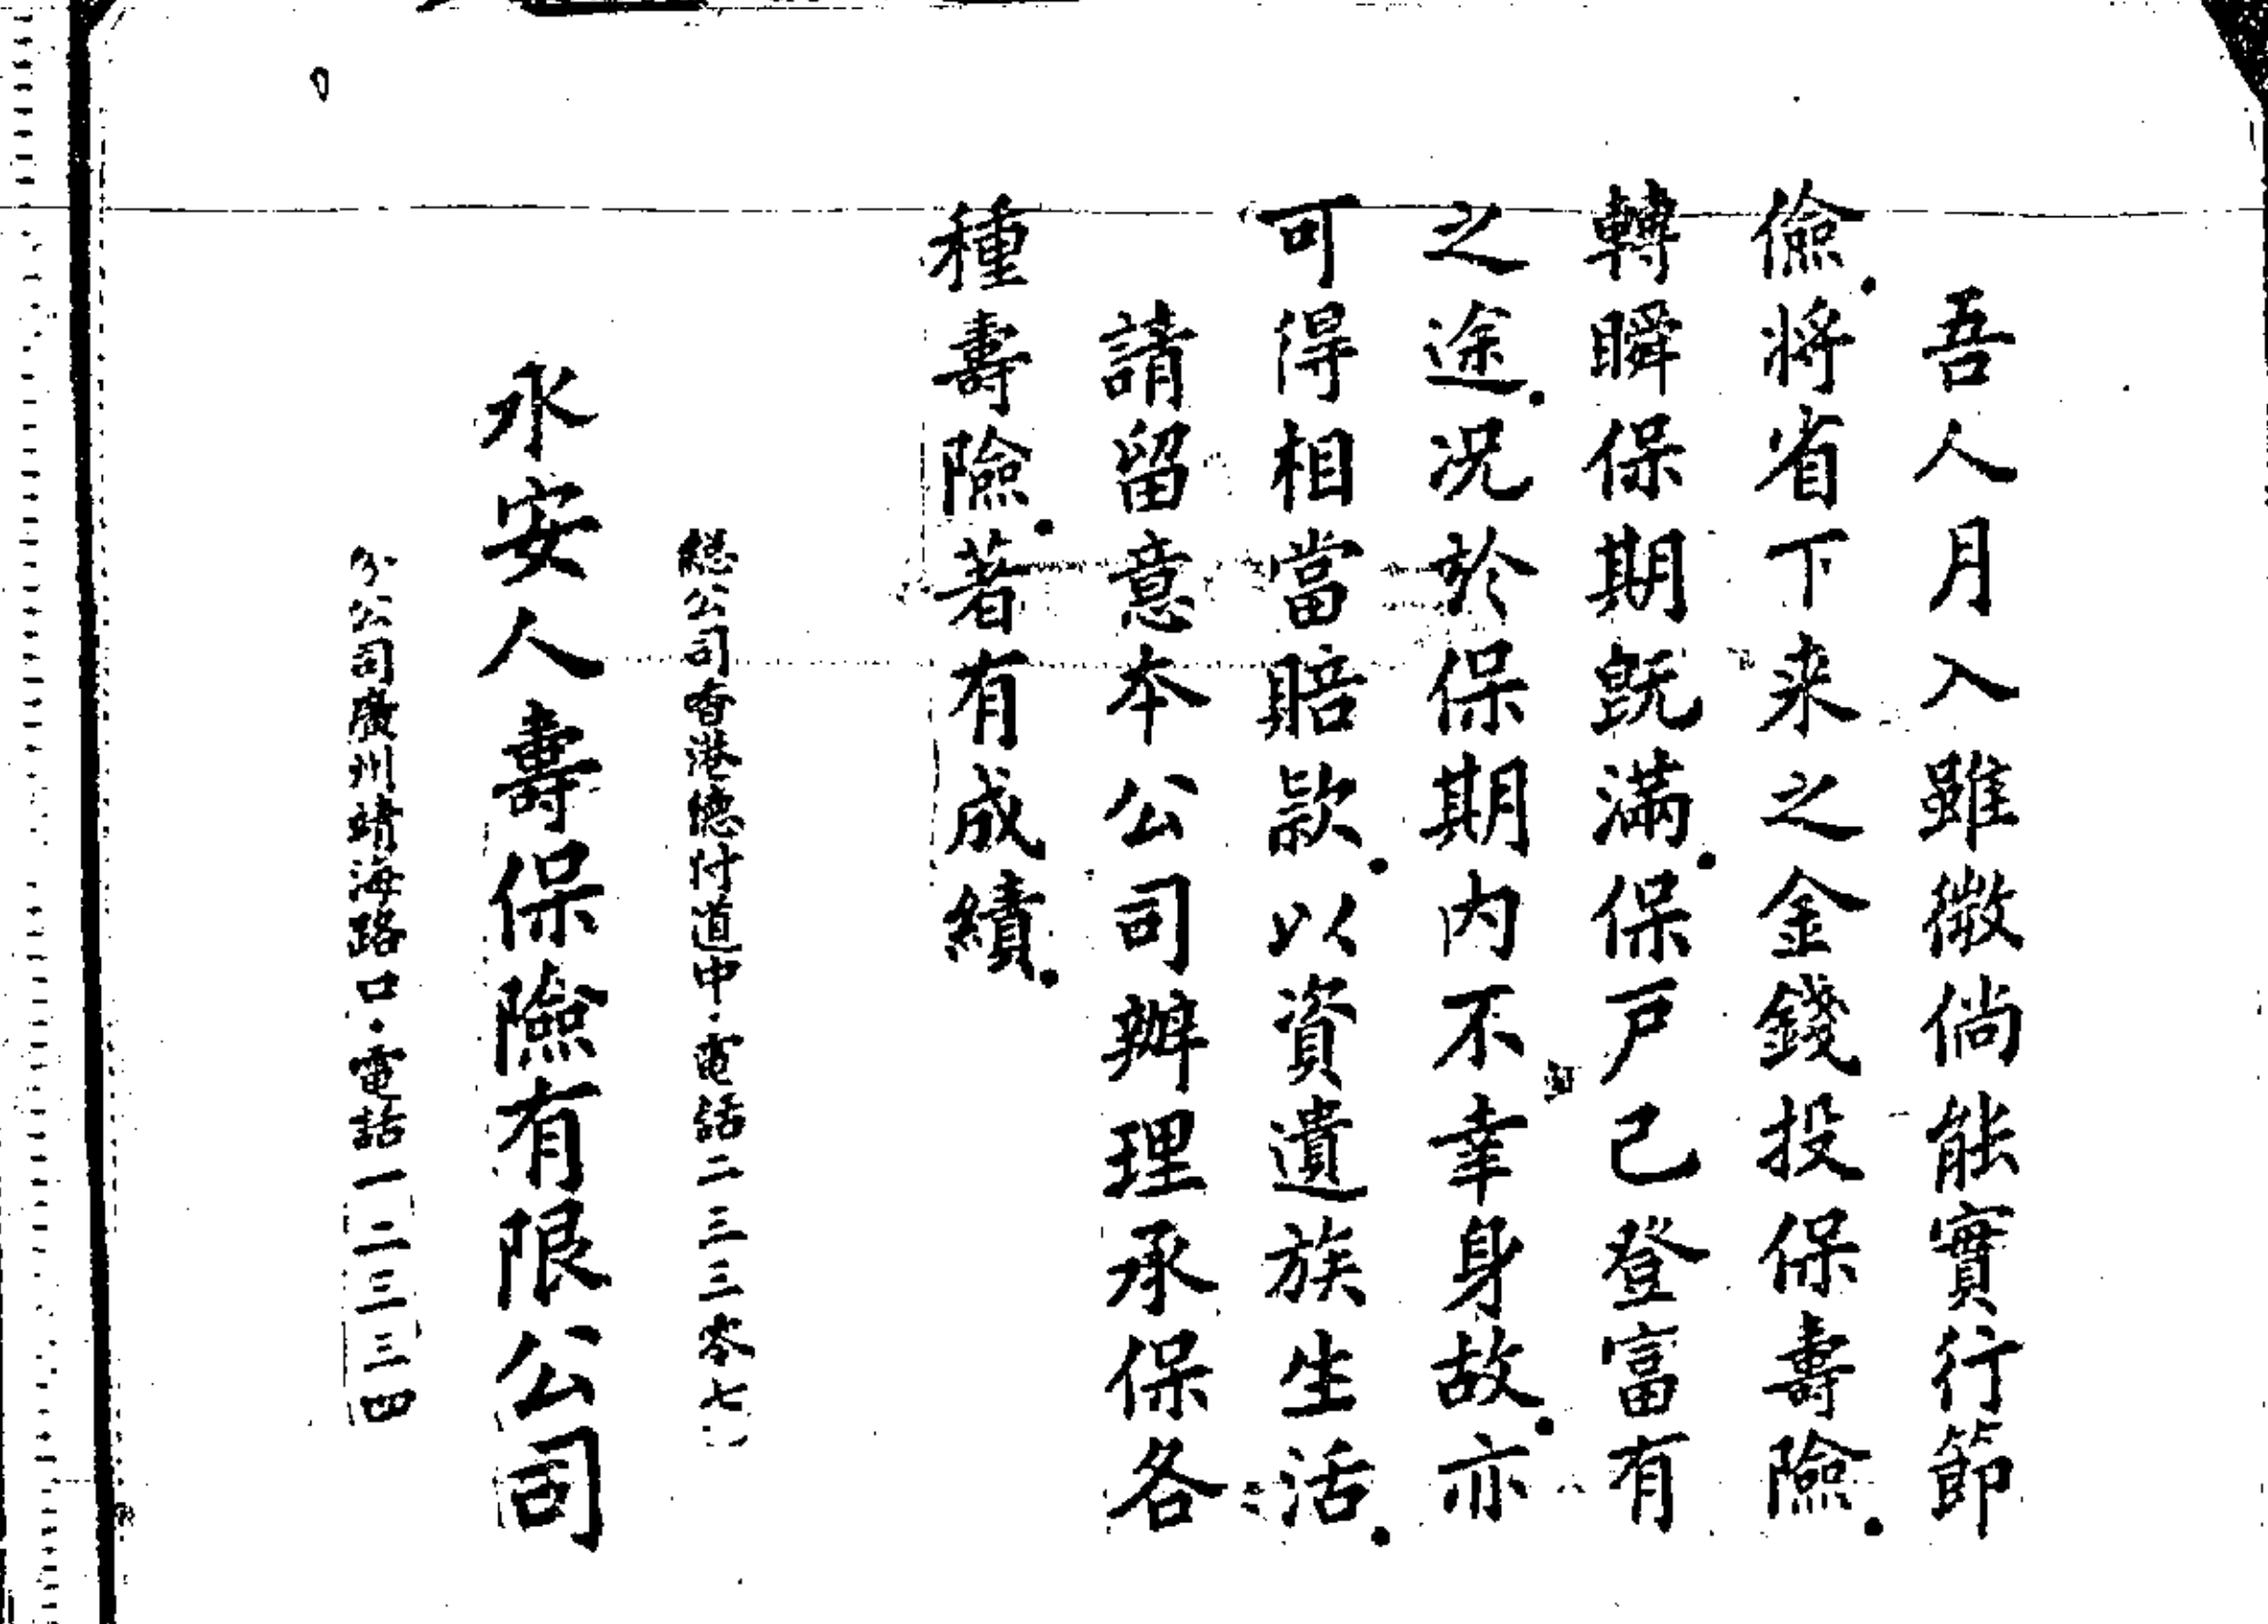 吾人月入雖微倘能實行節
儉.將省下来之金錢投保壽險.
轉瞬保期既滿.保戸已登富有
之途.况於保期内不幸身故.亦
可得相當賠款.以資遺族生活.
請留意本公司辦理承保各
種壽險.著有成績.
總公司香港德付道中.電話二三三零七
永安人壽保險有限公司
分公司廣州靖海路口.電話一二三三四